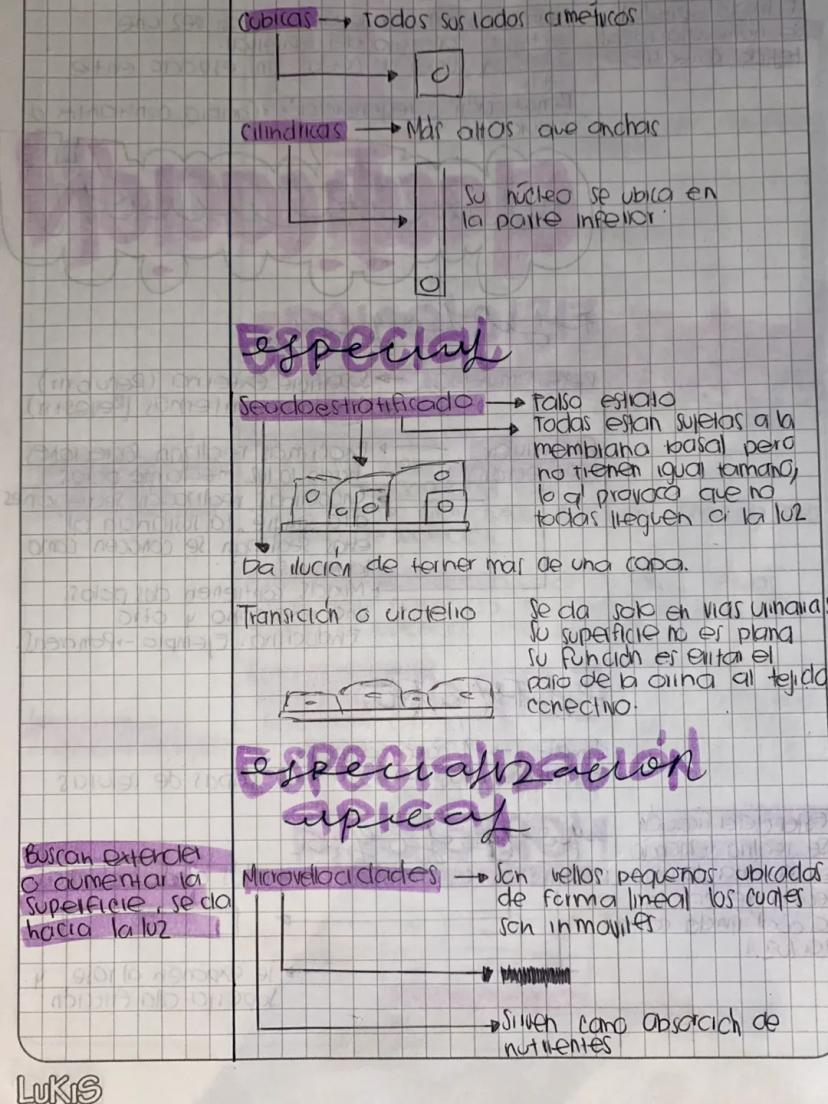 Cubicas → Todos sus lados cimetricos
Cilindricas → Más altas que anchas
Su núcleo se ubica en
la parte inferior.
especial
Seudoestratificado → Falso estrato
→ Todas estan sujetas a la
membrana basal pero
no tienen igual tamano,
lo q provoca que no
todas lleguen a la luz
Da ilución de terner mas de una capa.
Transición o urotelio
Se da solo en vias urinarias
su superficie no es plana
su función es evitar el
paso de la orina al tejido
conectivo.
especialización
apical
Buscan extender
o aumentar la
superficie, se da
hacia la luz
Microvellocidades → Son vellos pequeños ubicados
de forma lineal los cuales
son inmoviles
→ Sirven como absorcich de
nutrientes
LUKIS